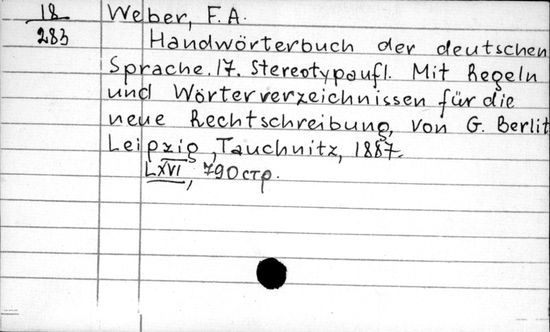 18 Weber, F. A.
283 Handwörterbuch der deutschen
Sprache. 17. Stereotypaufl. Mit Regeln
und Wörterverzeichnissen für die
neue Rechtschreibung, von G. Berlit
Leipzig, Tauchnitz, 1887.
LXVI, 790 стр.